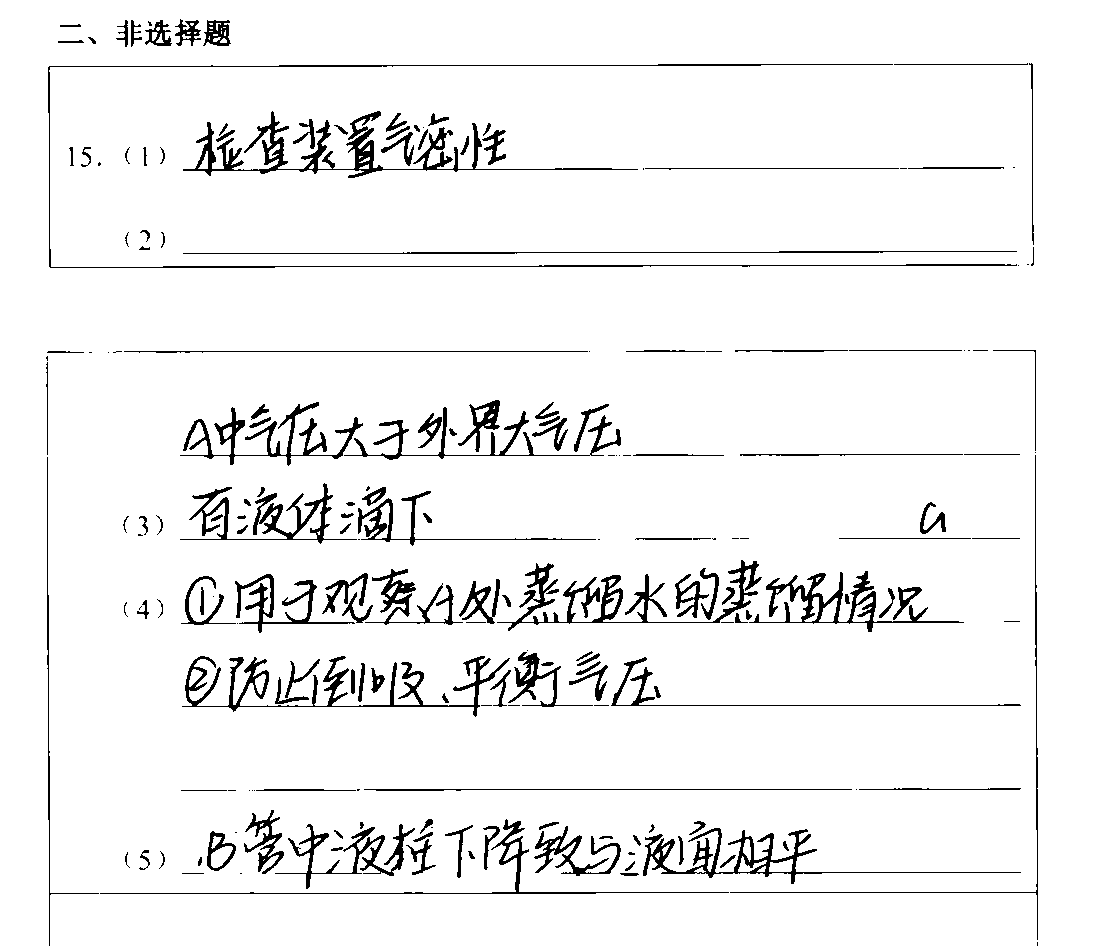 二、非选择题
15.（1）检查装置气密性
（2）
A中气压大于外界大气压
（3）有液体滴下 a
（4）①用于观察A处蒸馏水的蒸馏情况
②防止倒吸、平衡气压
（5）B管中液柱下降致与液面相平